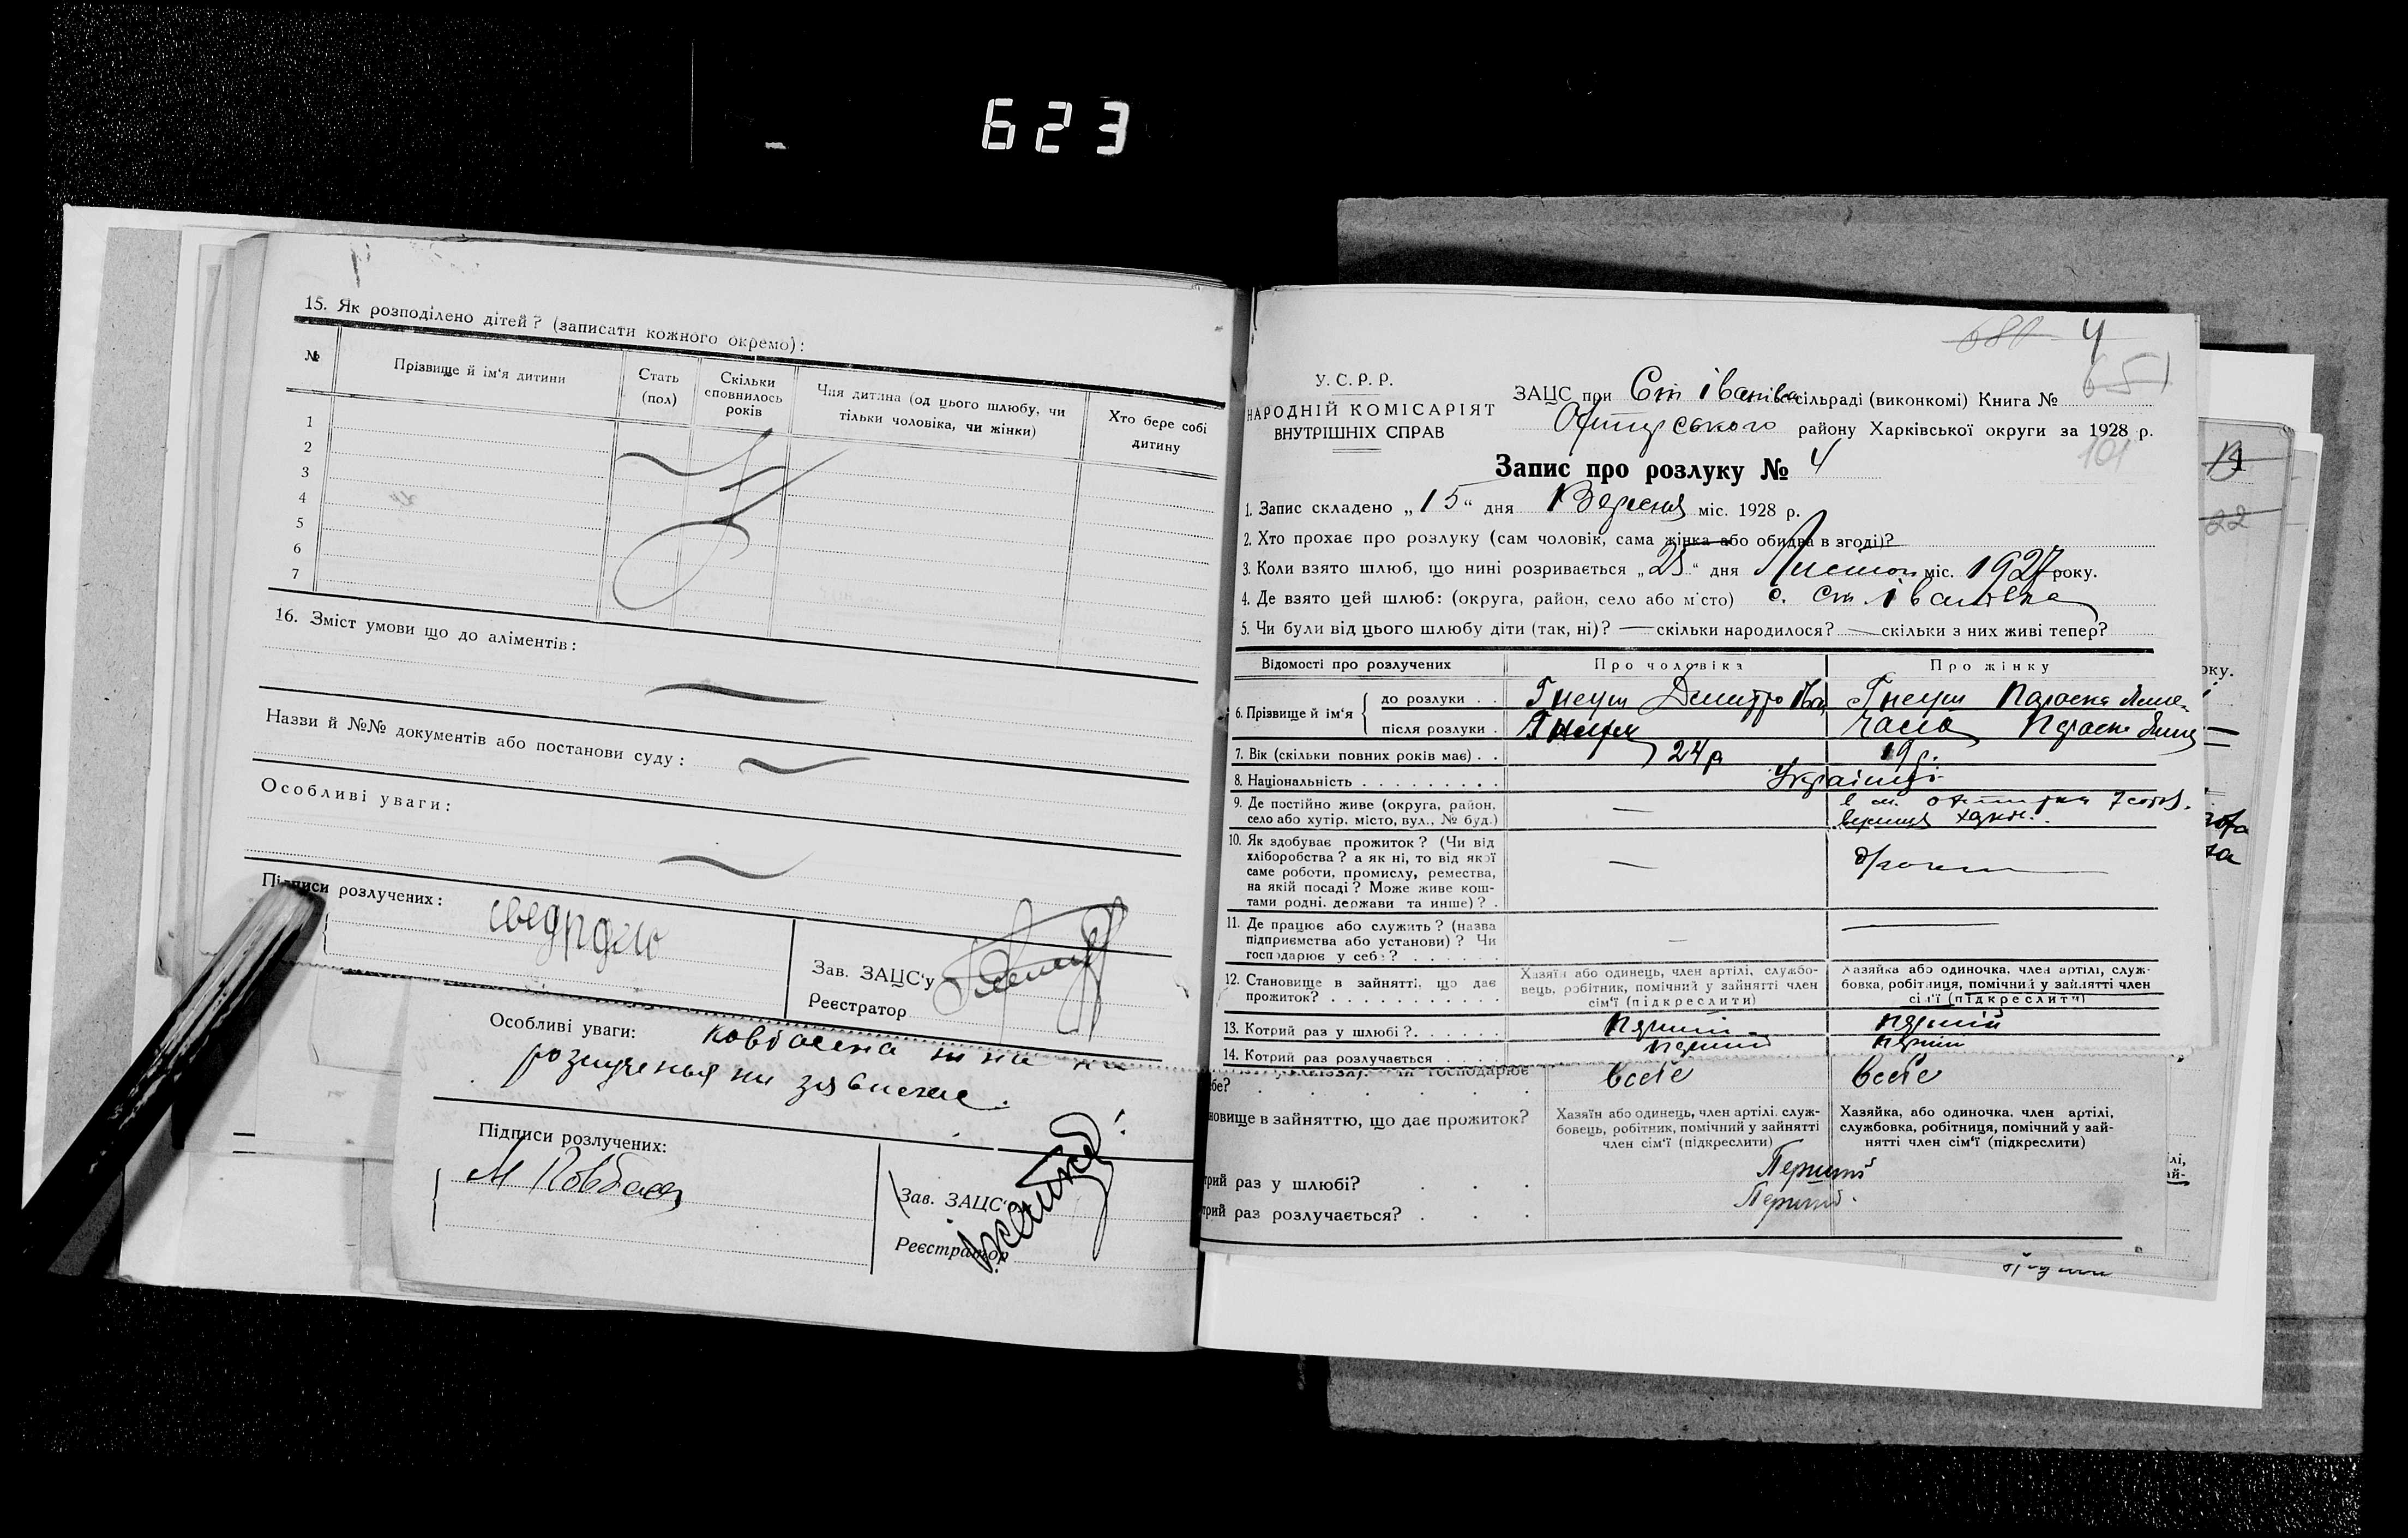 623
15. Як розподілено дітей? (записати кожного окремо):
№ Прізвище й ім'я дитини Стать (пол) Скільки сповнилось років Чия дитина (од цього шлюбу, чи тільки чоловіка, чи жінки) Хто бере собі дитину
1
2
3
4
5
6
7
16. Зміст умови що до аліментів:
Назви й №№ документів або постанови суду:
Особливі уваги:
Підписи розлучених:
Зав. ЗАЦС'у
Реєстратор
Особливі уваги:
Підписи розлучених:
М Ковбаса
Зав. ЗАЦС'
Реєстратор
4
651
У. С. Р. Р.
НАРОДНІЙ КОМІСАРІЯТ
ВНУТРІШНІХ СПРАВ
ЗАЦС при Ст Іванівс сільраді (виконкомі) Книга №
Охтирського району Харківської округи за 1928 р.
101
Запис про розлуку № 4
1. Запис складено „15“ дня Вересня міс. 1928 р.
2. Хто прохає про розлуку (сам чоловік, сама жінка або обидва в згоді)?
3. Коли взято шлюб, що нині розривається „25“ дня Листоп міс. 1927 року.
4. Де взято цей шлюб: (округа, район, село або місто) с. Ст. Іванівка
5. Чи були від цього шлюбу діти (так, ні)? — скільки народилося? — скільки з них живі тепер?
Відомості про розлучених Про чоловіка Про жінку
6. Прізвище й ім'я
до розлуки . . Гнеуш Дмитро Ів Гнеуш Параска
після розлуки . Гнеуш Параска
7. Вік (скільки повних років має) . . 24 р 19 р.
8. Національність . . . . . . . . . Українці
9. Де постійно живе (округа, район,
село або хутір, місто, вул., № буд.) —
10. Як здобуває прожиток? (Чи від
хліборобства? а як ні, то від якої
саме роботи, промислу, ремества,
на якій посаді? Може живе кош-
тами родні, держави та инше)? . —
11. Де працює або служить? (назва
підприємства або установи)? Чи
господарює у себе? . . . . . . —
12. Становище в зайнятті, що дає
прожиток? . . . . . . . . . . .
Хазяїн або одинець, член артілі, службо-
вець, робітник, помічний у зайнятті член
сім'ї (підкреслити)
Хазяйка або одиночка, член артілі, служ-
бовка, робітниця, помічний у зайнятті член
сім'ї (підкреслити)
13. Котрий раз у шлюбі? . . . . . . перший перший
14. Котрий раз розлучається . . . . перший перший
бе? . . . . . . всебе всебе
новище в зайняттю, що дає прожиток?
Хазяїн або одинець, член артілі, служ-
бовець, робітник, помічний у зайнятті
член сім'ї (підкреслити)
Хазяйка, або одиночка, член артілі,
службовка, робітниця, помічний у зай-
нятті член сім'ї (підкреслити)
трий раз у шлюбі? . . . Перший
трий раз розлучається? . . . Перший
22
оку.